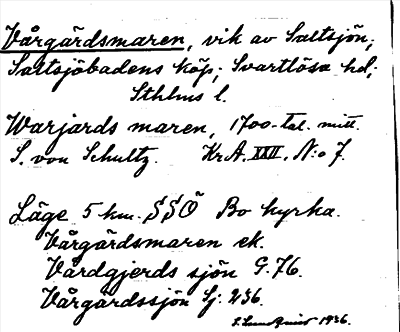 Vårgårdsmaren, vik av Saltsjön;
Saltsjöbadens köp; Svartlösa hd;
Sthlms l.
Warjards maren, 1700-tal. mitt.
S. von Schultz. Kr.A. XXII. N:o 7.
Läge 5 km. SSÖ Bo kyrka.
Vårgårdsmaren ek.
Vårdgjerds sjön G.76.
Vårgårdssjön Sj. 236.
1936.